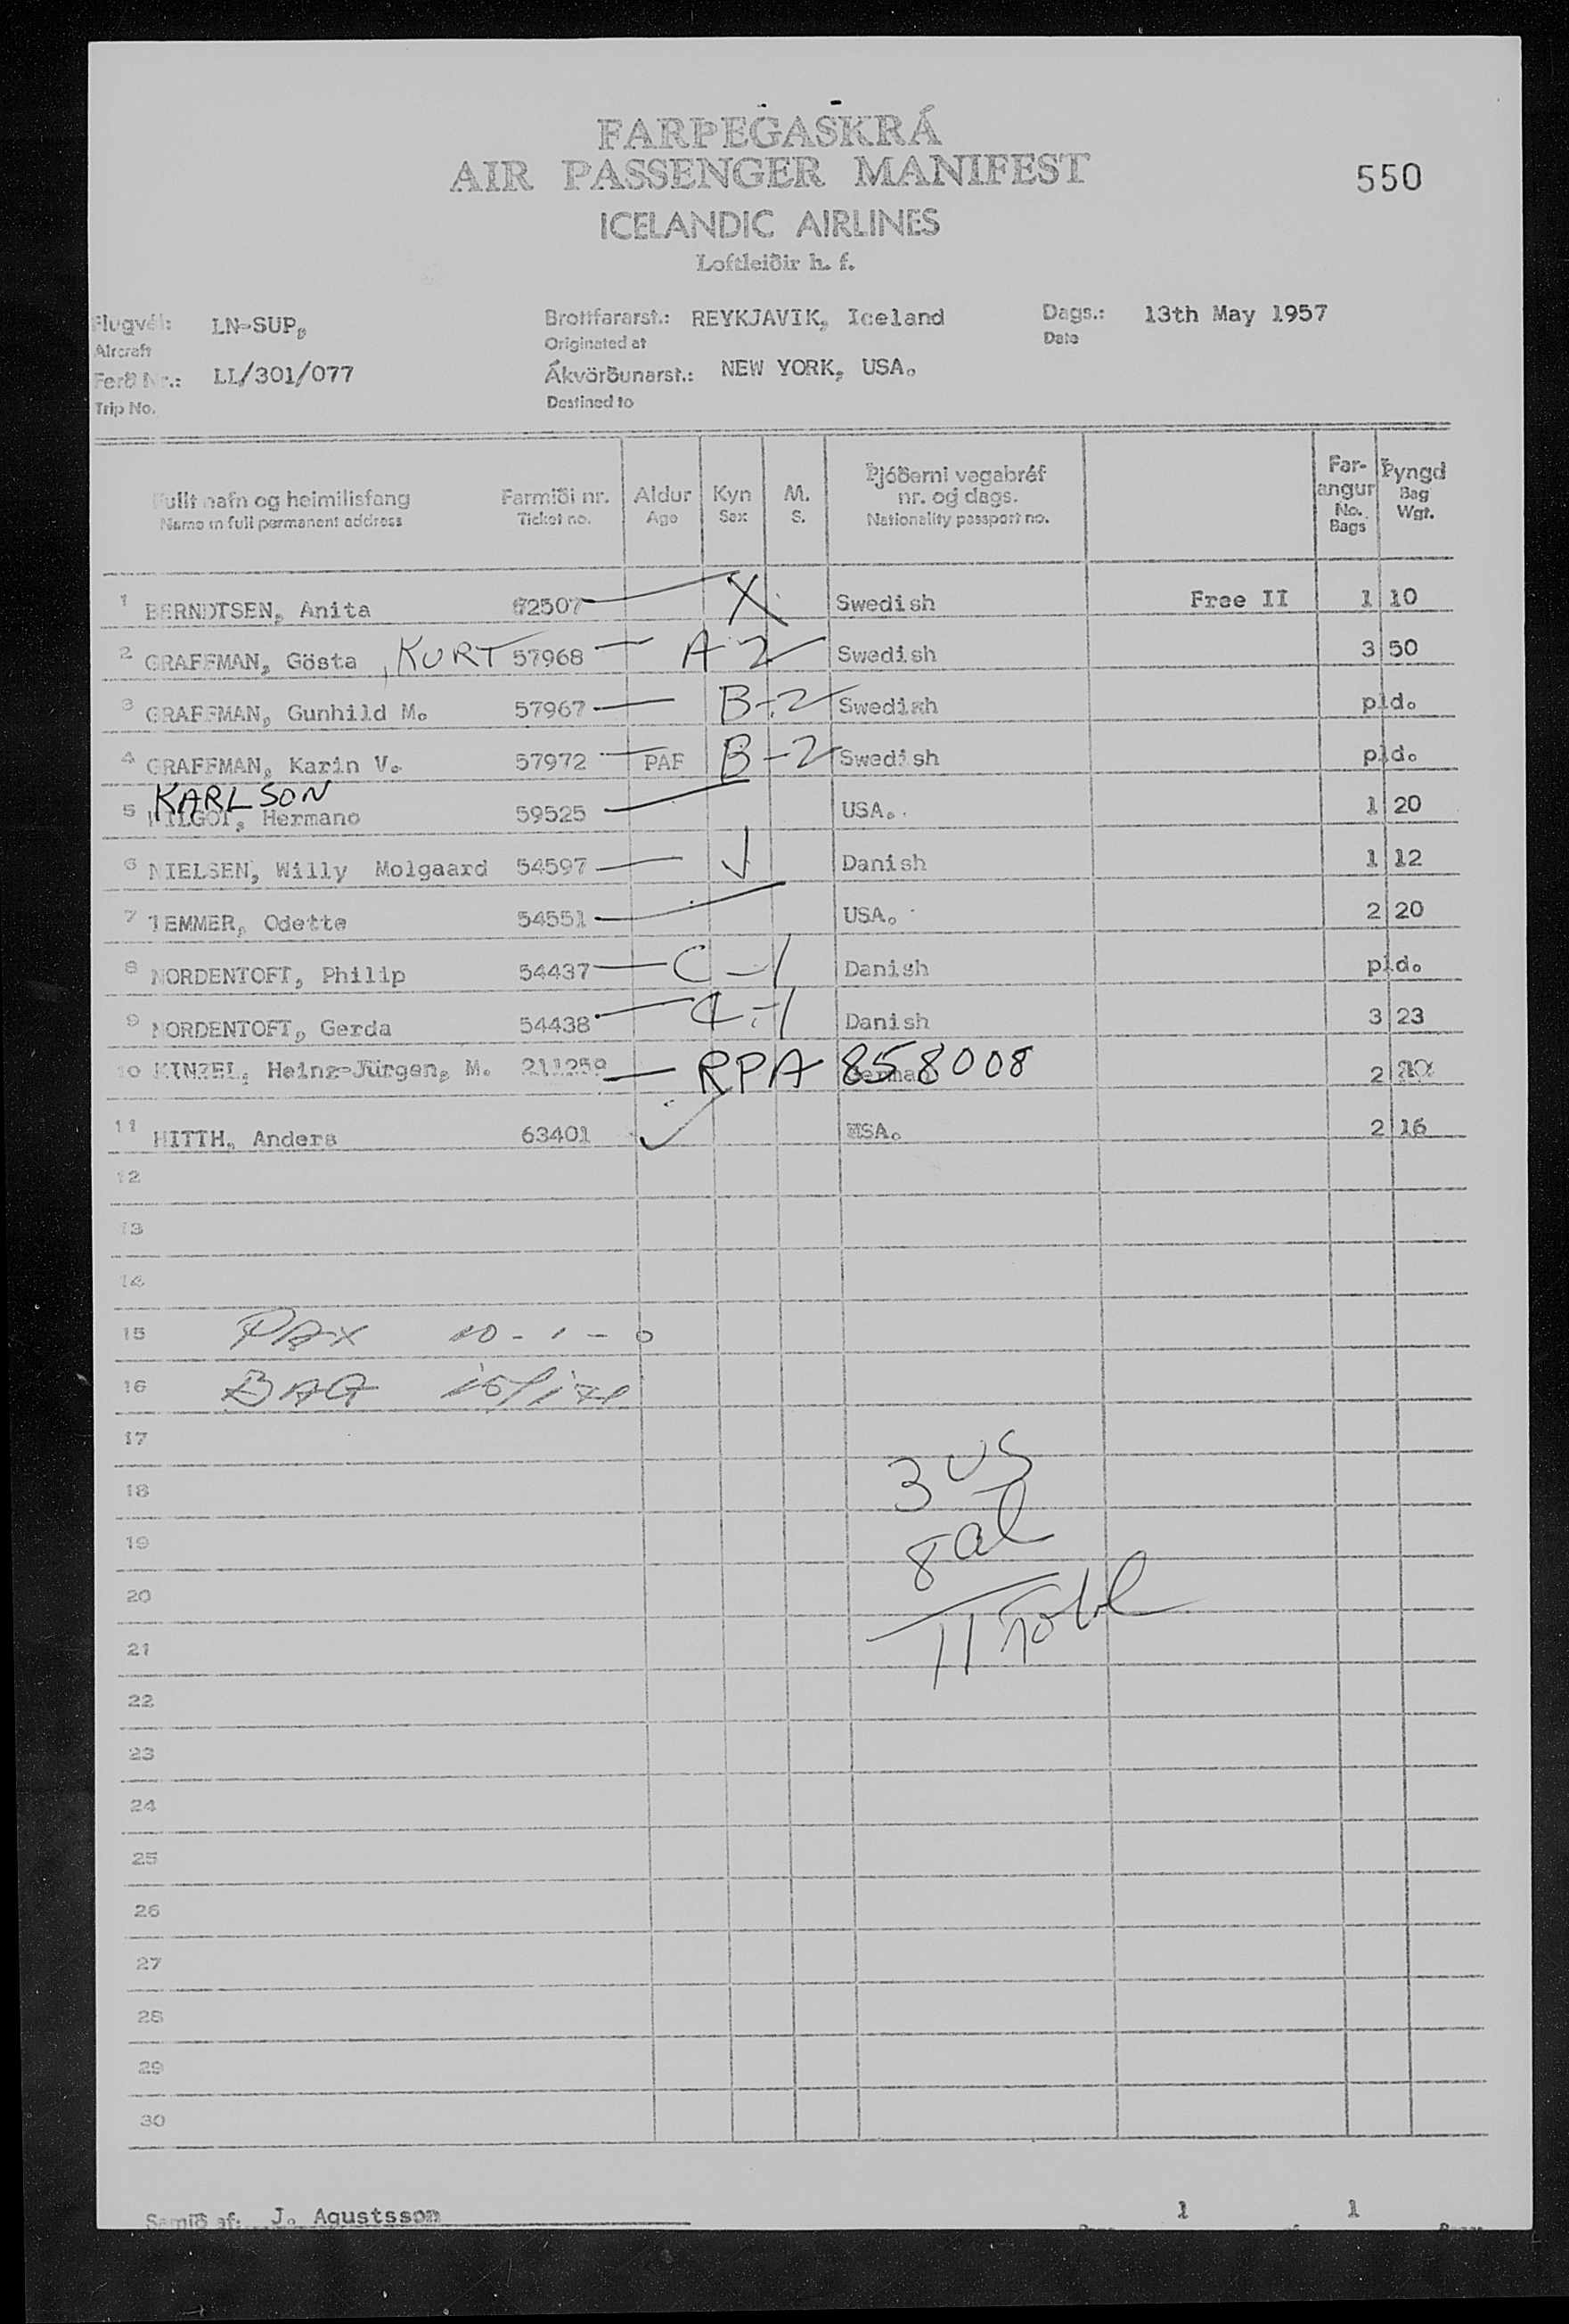 FARÞEGASKRÁ
AIR PASSENGER MANIFEST
550
ICELANDIC AIRLINES
Loftleiðir h. f.
Flugvél: LN-SUP, Brottfararst.: REYKJAVIK, Iceland Dags.: 13th May 1957
Aircraft Originated at Date
Ferð Nr.: LL/301/077 Ákvörðunarst.: NEW YORK, USA.
Trip No. Destined to
Fullt nafn og heimilisfang Farmiði nr. Aldur Kyn M. Þjóðerni vegabréf nr. og dags. Far-angur Þyngd
Name in full permanent address Ticket no. Age Sex S. Nationality passport no. No. Bags Bag Wgt.
1 BERNDTSEN, Anita 62507 X Swedish Free II 1 10
2 GRAFFMAN, Gösta, KURT 57968 A-2 Swedish 3 50
3 GRAFFMAN, Gunhild M. 57967 B-2 Swedish pld.
4 GRAFFMAN, Karin V. 57972 PAF B-2 Swedish pld.
KARLSON
5 Hermano 59525 USA. 1 20
6 NIELSEN, Willy Molgaard 54597 Danish 1 12
7 TEMMER, Odette 54551 USA. 2 20
8 NORDENTOFT, Philip 54437 C-1 Danish pld.
9 NORDENTOFT, Gerda 54438 C-1 Danish 3 23
10 KINZEL, Heinz-Jürgen, M. 211259 RPA 858008 German 2
11 HITTH, Anders 63401 USA. 2 16
12
13
14
15 PAX 10-1-0
16 BAG 15/171
17
18 3 US
19 8 al
20
21 11 Total
22
23
24
25
26
27
28
29
30
Samið af: J. Agustsson 1 1